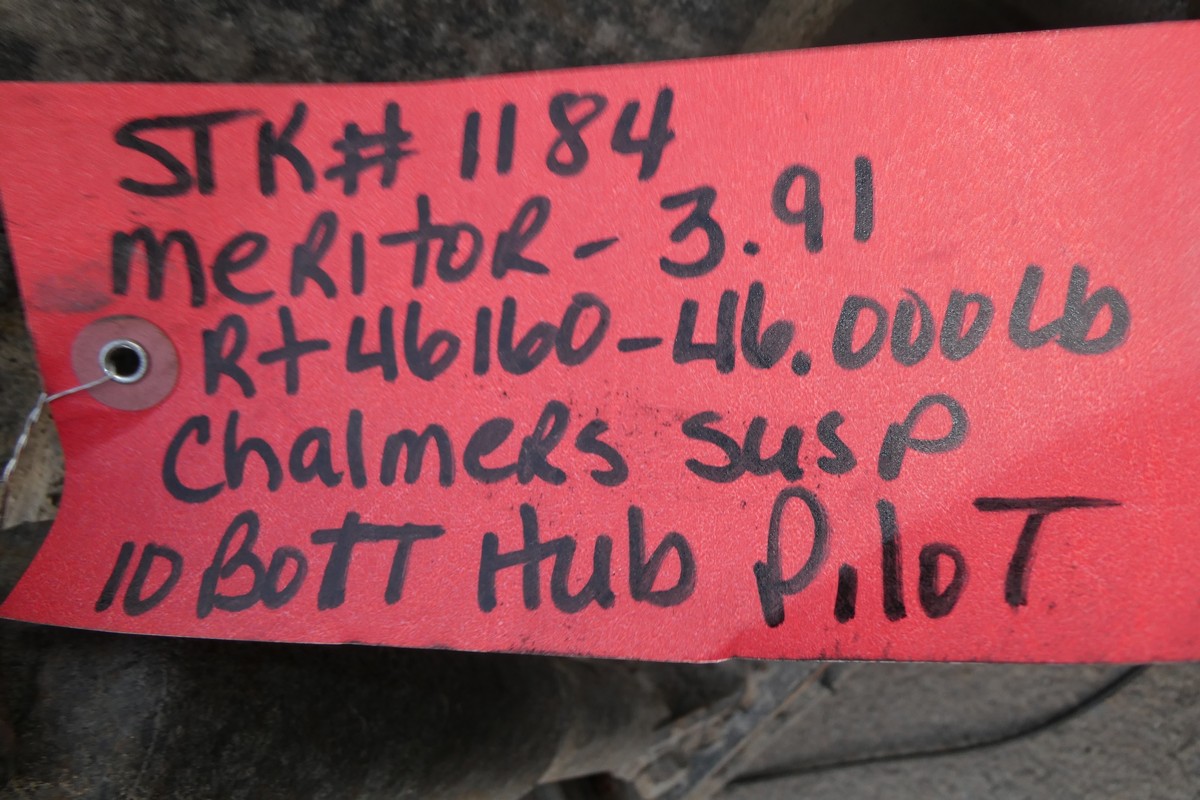 STK# 1184
MeRitoR - 3.91
Rt 46160 - 46.000 Lb
ChalmeRs susp
10 BoTT Hub PiloT